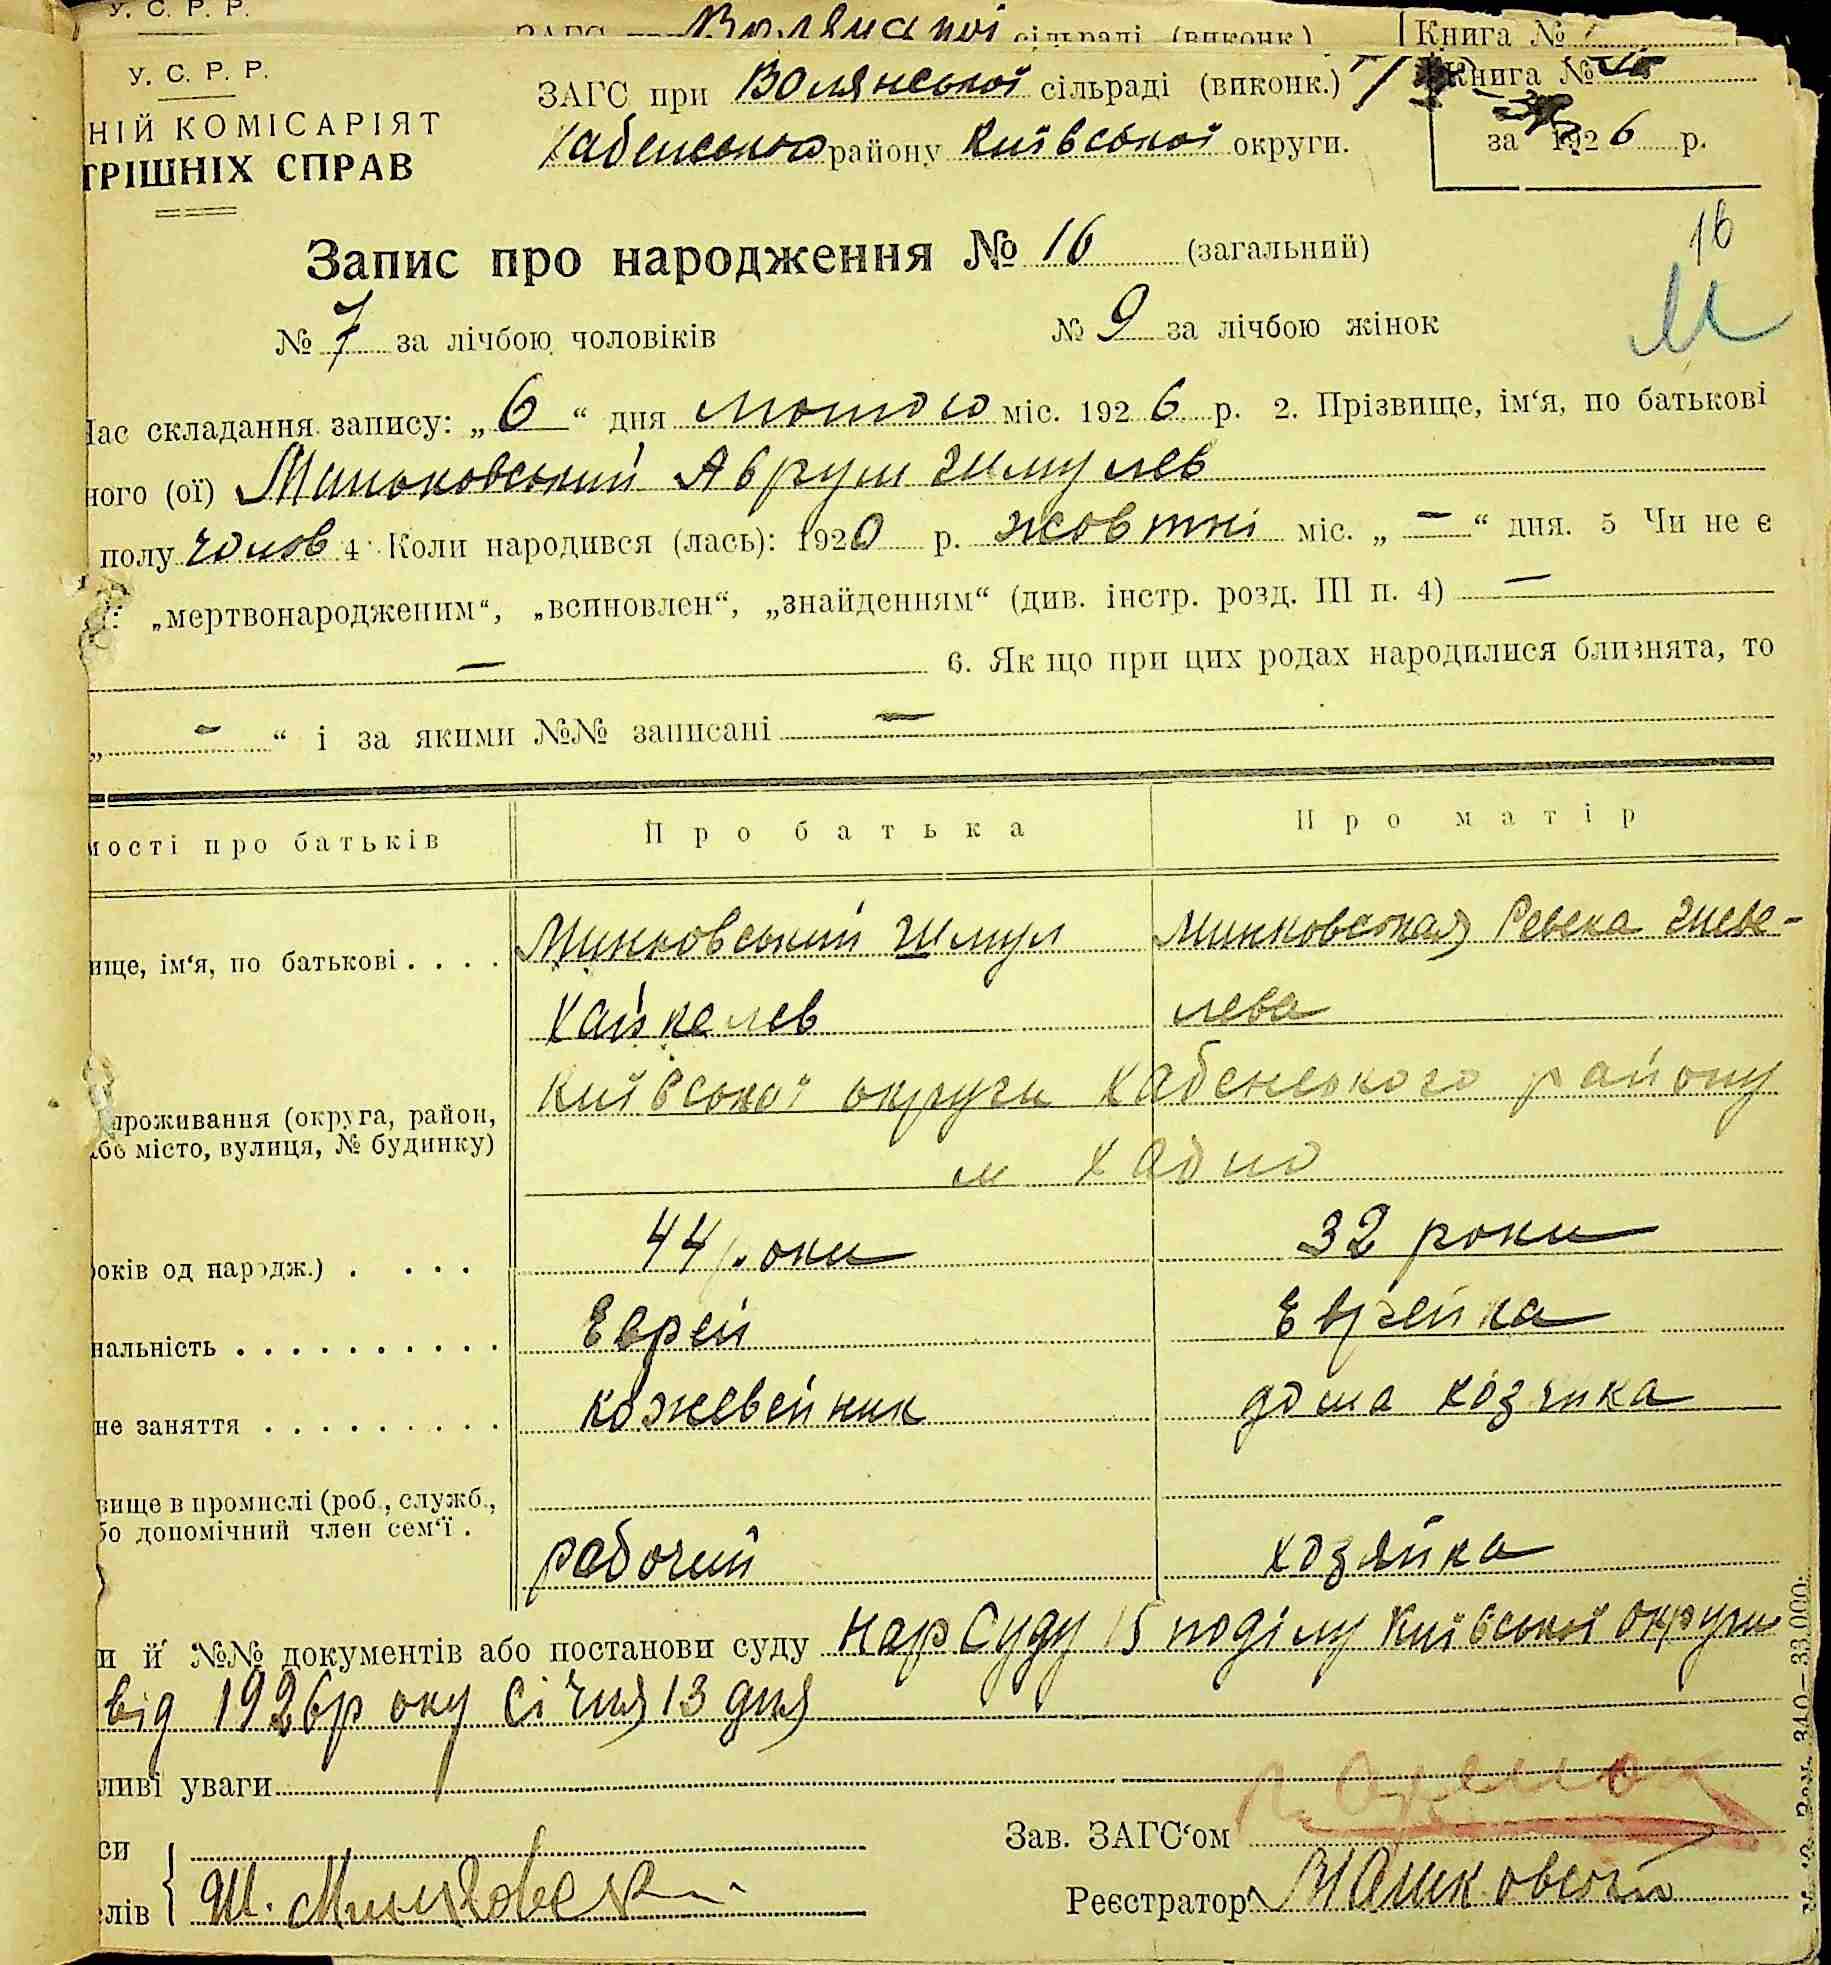 У. С. Р. Р.
ЗАГС сільраді (виконк.) Книга №
У. С. Р. Р.
НІЙ КОМІСАРІЯТ
ТРІШНІХ СПРАВ
ЗАГС при Волянської сільраді (виконк.) Книга №
Хабенського району Київської округи. за 1926 р.
16
Запис про народження № 16 (загальний)
М
№ 7 за лічбою чоловіків № 9 за лічбою жінок
Час складання запису: „6“ дня лютого міс. 1926 р. 2. Прізвище, ім'я, по батькові
ного (ої) Миньковський Аврум Шмулев
полу чолов 4. Коли народився (лась): 1920 р. жовтні міс. „—“ дня. 5 Чи не є
„мертвонародженим“, „всиновлен“, „знайденням“ (див. інстр. розд. III п. 4) —
— 6. Як що при цих родах народилися близнята, то
„ - “ і за якими №№ записані —
мості про батьків Про батька Про матір
ище, ім'я, по батькові . . . . Миньковський Шмул Минковская Ревека Шеве-
Хайкелев лева
проживання (округа, район, Київської округи Хабенського району
бо місто, вулиця, № будинку) м Хабно
років од народж.) . . . . 44 роки 32 роки
нальність . . . . . . . . . . Еврей Еврейка
не заняття . . . . . . . . . кожевейник дома хозяйка
вище в промислі (роб., служб.,
бо допомічний член сем'ї . рабочий хозяйка
и й №№ документів або постанови суду НарСуду 15 поділу Київської округи
від 1926 року Січня 13 дня
ливі уваги
си Зав. ЗАГС'ом
лів Ш. Минковск Реєстратор
Зам. 310—33.000.